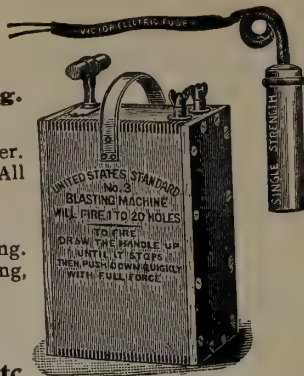 VICTOR ELECTRIC FUSE
g.
SINGLE STRENGTH
er.
All
UNITED STATES STANDARD
No. 3
BLASTING MACHINE
WILL FIRE 1 TO 20 HOLES
TO FIRE
DRAW THE HANDLE UP
UNTIL IT STOPS
THEN PUSH DOWN QUICKLY
WITH FULL FORCE
ng.
ng,
etc